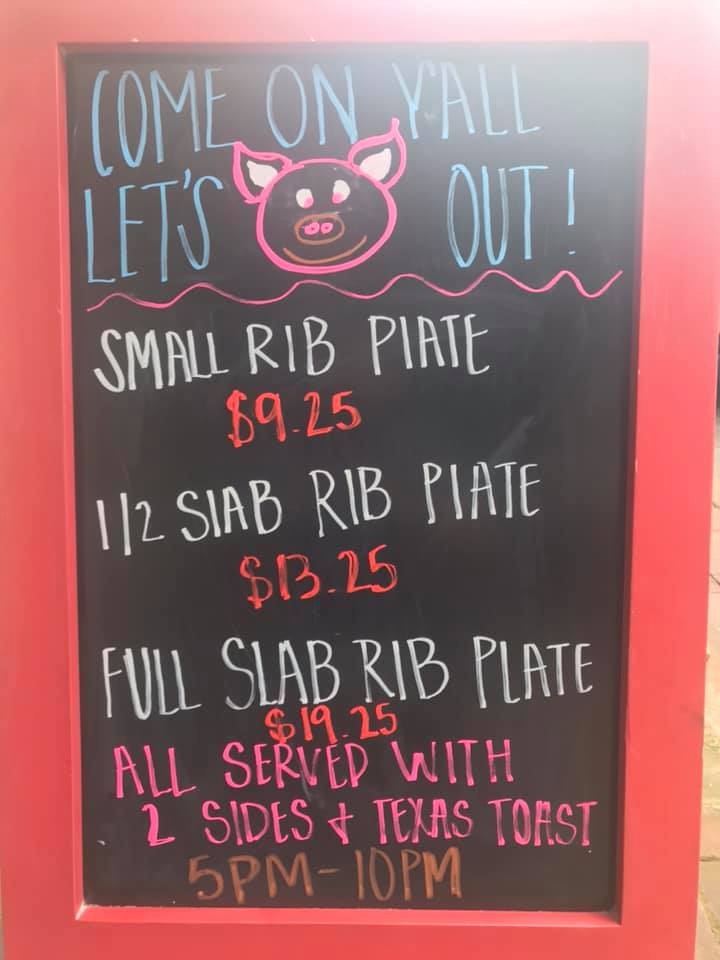 COME ON Y'ALL
LET'S OUT!
SMALL RIB PLATE
$9.25
1/2 SLAB RIB PLATE
$13.25
FULL SLAB RIB PLATE
$19.25
ALL SERVED WITH
2 SIDES & TEXAS TOAST
5PM-10PM